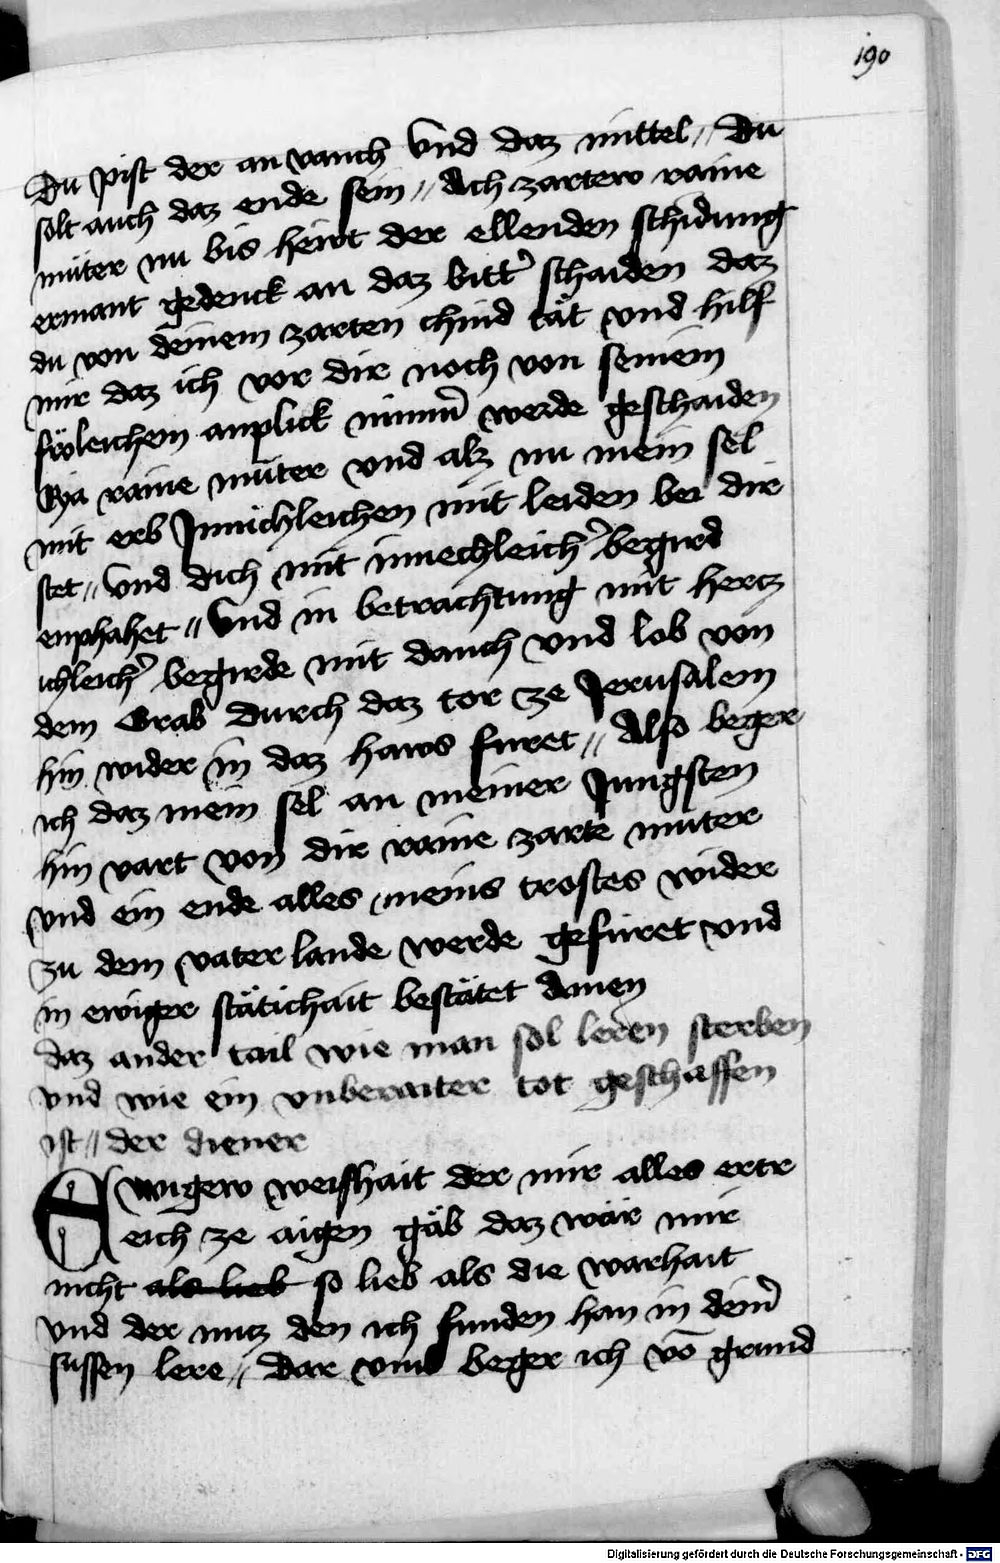 190
Du pist der an vanch Vnd daz mittel // Du
solt auch daz ende sein // Ach zartew raine
muter nu bis hewt der ellenden schidung
ermant gedenck an daz bitt&#x27; schaiden daz
du von deinem zarten chind tät vnd hilf
mir daz ich vor dir noch von seinem
fröleichem anplick nimm&#x27; werde geschaiden
Eya raine muter vnd alz nu mein sel
mit erb Jnnichleichen mit leiden bei dir
stet // Vnd dich mit innechleich&#x27; begird
enphahet // Vnd in betrachtung mit hertz
ichleich&#x27; begirde mit danch vnd lob von
dem Grab durch daz tor ze Jerusalem
hin wider in daz haws furet // Also beger
ich daz mein sel an meiner Jungsten
hin vart von dir raine zarte muter
vnd ein ende alles meins trostes wider
zu dem vater lande werde gefüret vnd
in ewiger stätichait bestätet Amen
daz ander tail wie man sol leren sterben
vnd wie ein vnberaiter tot geschaffen
ist // der diener
Ewigew weishait der mir alles ertr
eich ze aigen gäb daz wär mir
nicht als lieb so lieb als die warhait
vnd der nutz den ich funden han in dein&#x27;
sussen lere // Dar vmb beger ich vō grund
Digitalisierung gefördert durch die Deutsche Forschungsgemeinschaft - DFG